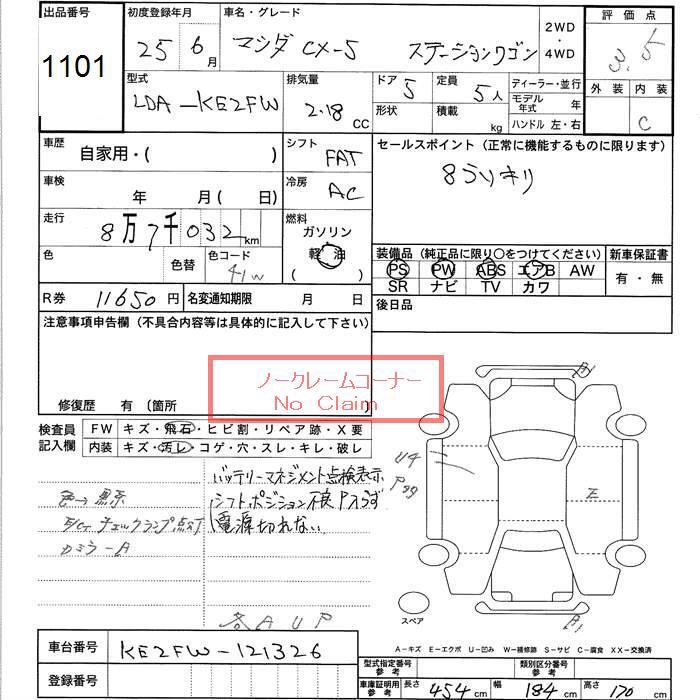 出品番号 初度登録年月 車名・グレード 2WD・4WD 評価点
1101 25 6月 マツダ CX-5 ステーションワゴン 3.5
型式 排気量 ドア 定員 ディーラー・並行 外装 内装
LDA-KE2FW 2.18 CC 5 5人 モデル年式 年
形状 積載 kg ハンドル 左・右 C
車歴 自家用・( ) シフト FAT セールスポイント (正常に機能するものに限ります)
車検 年 月( 日) 冷房 AC 8うリキリ
走行 8万7千032km 燃料 ガソリン 軽油 ( )
色 色替 色コード 41W 装備品 (純正品に限り○をつけてください) 新車保証書
PS PW ABS エアB AW 有・無
SR ナビ TV カワ
R券 11650円 名変通知期限 月 日 後日品
注意事項申告欄 (不具合内容等は具体的に記入して下さい)
ノークレームコーナー
No Claim
修復歴 有 (箇所
検査員記入欄 FW キズ・飛石・ヒビ割・リペア跡・X要
内装 キズ・汚レ・コゲ・穴・スレ・キレ・破レ
バッテリーマネジメント点検表示
色→黒系 シフトポジション不良 P入らず
E/Gチェックランプ点灯 電源切れない
カミラーA
各AUP
U4
P99
E
A1
B1
スペア
A-キズ E-エクボ U-凹み W-補修跡 S-サビ C-腐食 XX-交換済
車台番号 KE2FW-121326
登録番号
型式指定番号 参考 類別区分番号 参考
車庫証明用 参考 長さ 454cm 幅 184cm 高さ 170cm